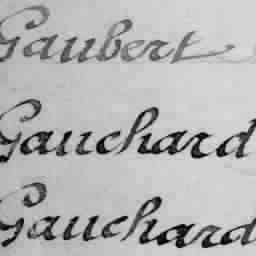 Gaubert
Gauchard
Gauchard